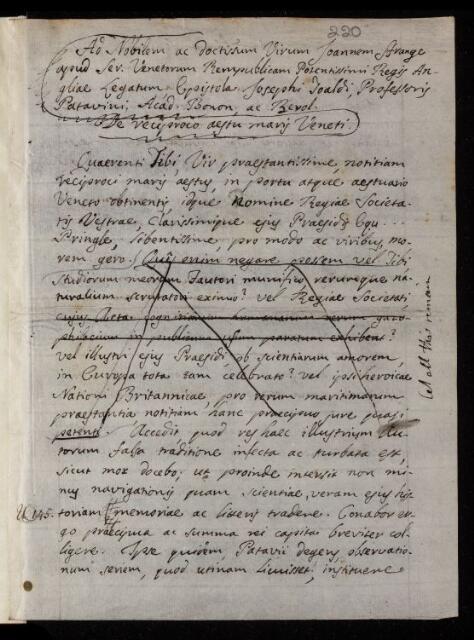 220
Ad Nobilem ac Doctissum Virum Joannem Strange
apud Ser. Venetorum Rempublicam Potentissimi Regis An-
gliae Legatum Epistola Josephi Toaldi, Professoris
Patavini, Acad. Bonon. ac Berol.
De reciproco aestu maris Veneti.
Quaerenti Tibi, Vir praestantissime, notitiam
reciproci maris aestus, in portu atque aestuario
Veneto obtinentis, idque Nomine Regiae Societa-
tis Vestrae, Clarissimique ejus Praesidis Equ...
Pringle, libentissime, pro modo ac viribus, mo-
rem gero. Quis enim negare possem vel Tibi
Studiorum meorum Fautori munifico, rerumque na-
turalium scrutatori eximio? vel Regiae Societati
cujus Acta rerum gazo-
phylacium in publicum usum paratum exhibent?
vel illustri ejus Praesidi ob scientiarum amorem,
in Europa tota tam celebrato? vel ipsi heroicae
Nationi Britannicae, pro rerum maritimarum
praestantia notitiam hanc praecipuo jure quasi
petenti. Accedit quod res haec illustrium Au-
torum falsa traditione infecta ac turbata est,
sicut mox docebo; ut proinde intersit non mi-
nus navigationis quam scientiae, veram ejus his-
toriam memoriae ac literis tradere. Conabor er-
go praecipua ac summa rei capita breviter col-
ligere. Ipse quidem, Patavii degens, observatio-
num seriem, quod utinam licuisset, instituere
145.
Let all this remain